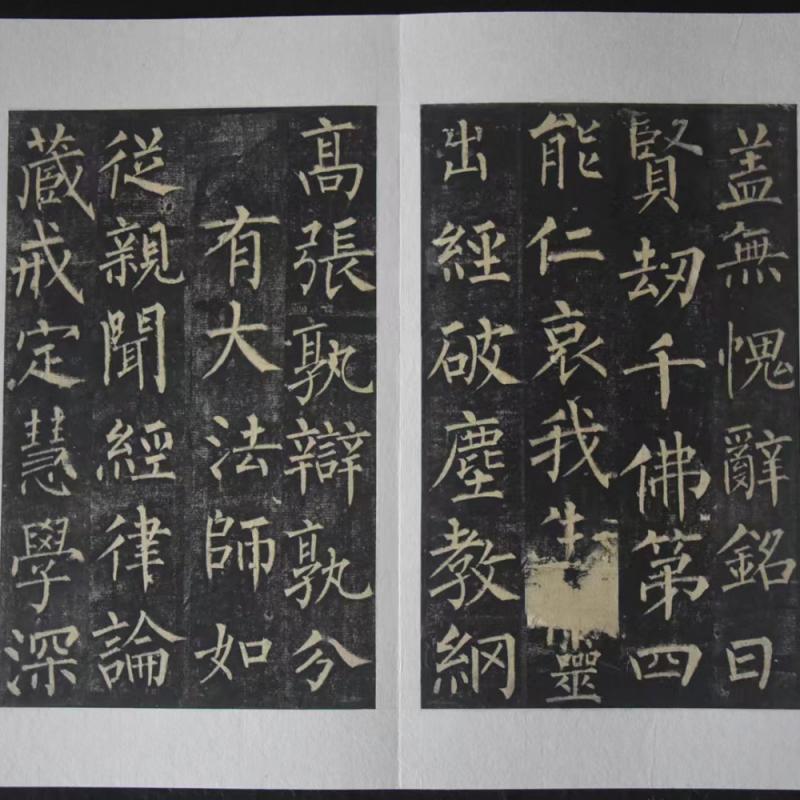 盖無愧辭銘曰
賢劫千佛第四
能仁哀我生靈
出經破塵教網
高張孰辯孰分
有大法師如
從親聞經律論
藏戒定慧學深